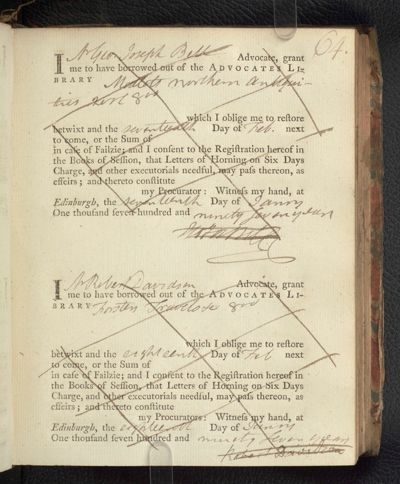 64.
I Mr Geo: Joseph Bell Advocate, grant
me to have borrowed out of the ADVOCATES LI-
BRARY Mallets northern antiqui-
ties 8vo
which I oblige me to reſtore
betwixt and the seventeenth Day of Feb. next
to come, or the Sum of
in caſe of Failzie; and I conſent to the Regiſtration hereof in
the Books of Seſſion, that Letters of Horning on Six Days
Charge, and other executorials needful, may paſs thereon, as
effeirs; and thereto conſtitute
my Procurator: Witneſs my hand, at
Edinburgh, the seventeenth Day of Janry
One thouſand ſeven hundred and ninety seven years
I Mr Robert Davidson Advocate, grant
me to have borrowed out of the ADVOCATES LI-
BRARY Forsters 8vo
which I oblige me to reſtore
betwixt and the eighteenth Day of Feb next
to come, or the Sum of
in caſe of Failzie; and I conſent to the Regiſtration hereof in
the Books of Seſſion, that Letters of Horning on Six Days
Charge, and other executorials needful, may paſs thereon, as
effeirs; and thereto conſtitute
my Procurators: Witneſs my hand, at
Edinburgh, the eighteenth Day of Janry
One thouſand ſeven hundred and ninety seven years
Robert Davidson